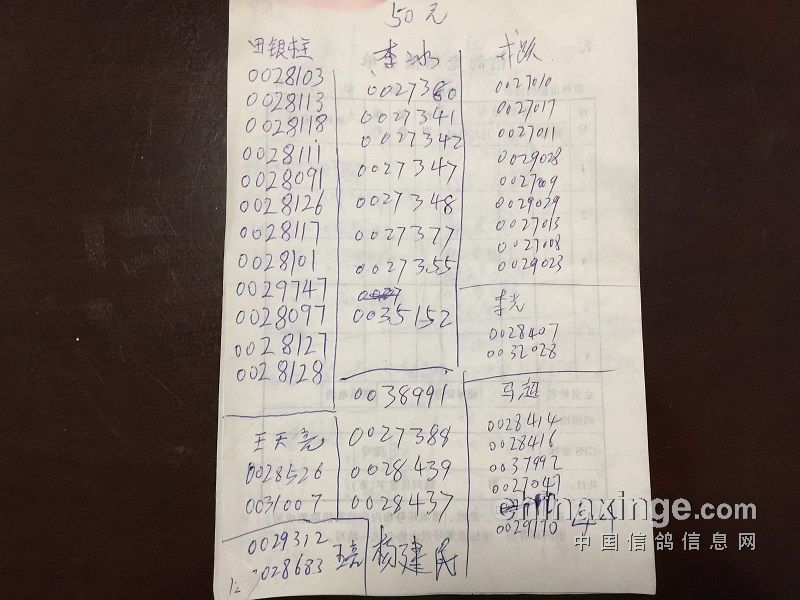 50元
田银柱
0028103
0028113
0028118
0028111
0028091
0028126
0028117
0028101
0029747
0028097
0028127
0028128
王天亮
0028526
0031007
0029312
028683
12
李冰
0027380
0027341
0027342
0027347
0027348
0027377
0027355
0035152
0038991
0027388
0028439
0028437
杨建民
0027010
0027017
0027011
0029028
0027009
0029029
0027013
0027008
0029023
李光
0028407
0032028
马超
0028414
0028416
0037992
0027047
0029170
chinaxinge.com
中国信鸽信息网